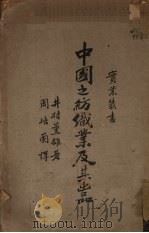 實業叢書
中國之紡織業及其出品
井村薰雄著
周培蘭譯